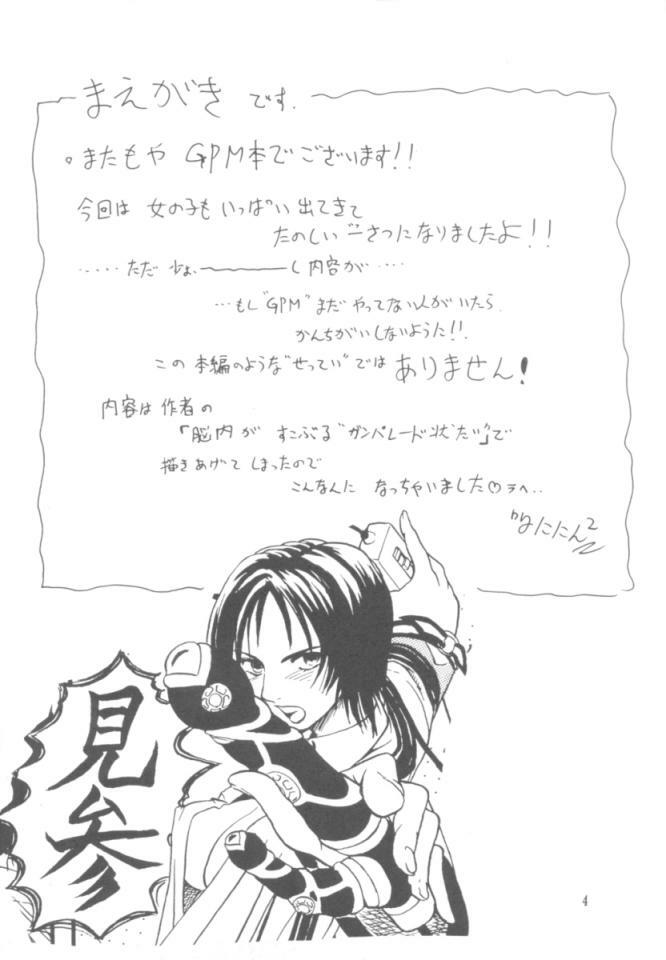 まえがき です.
。またもや GPM本でございます!!
今回は 女の子も いっぱい 出てきて
たのしい 一さつになりましたよ!!
‥‥‥ ただ 少ょ ――――し 内容が‥‥
…もし"GPM"まだ やってない人がいたら
かんちがいしないように!!
この 本編のような"せってい"では ありません!
内容は 作者の
「脳内が すこぶる"ガンパレード状たい"」で
描きあげて しまったので
こんなんに なっちゃいました♡ラヘ..
見参
4